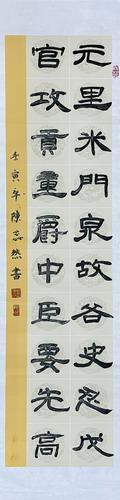 元里米門泉故谷史忍戊
官攻貢量爵中臣要先高
壬寅年陳志然書